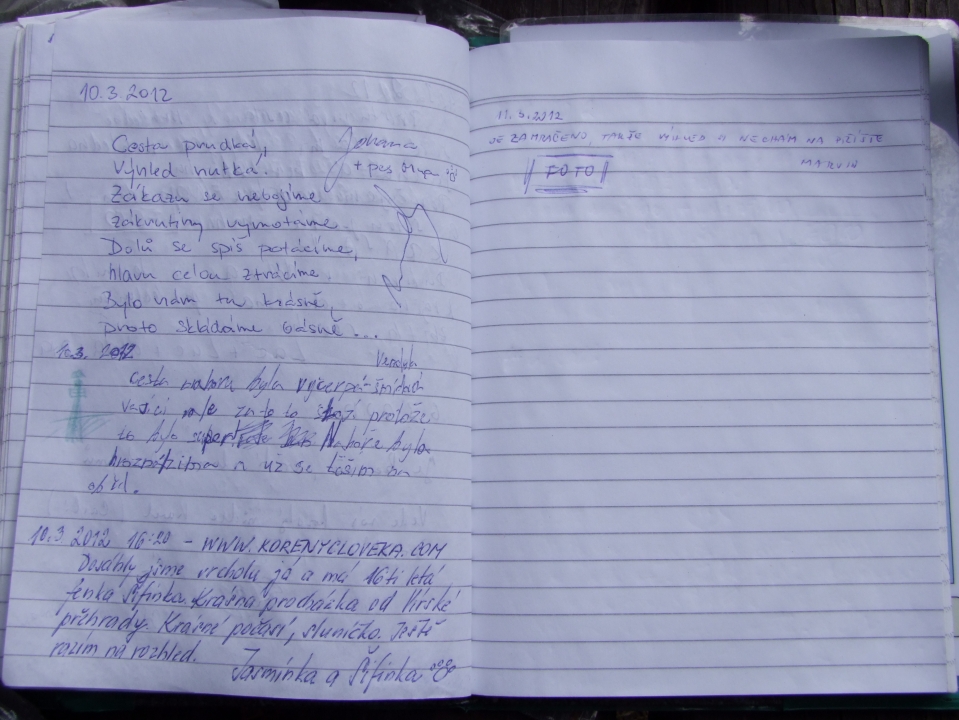 10.3.2012
Cesta prudká,
Výhled nutká.
Johana
+ pes
Zákazu se nebojíme
zákrutiny vymotáme.
Dolů se spíš potácíme,
hlavu celou ztrácíme.
Bylo nám tu krásně,
proto skládáme básně...
10.3. 2012
cesta nahoru byla
ale za to to stojí protože
to bylo super Nahoře byla
zima a už se těším na
oběd.
10.3 2012 16:20 - WWW.KORENYCLOVEKA.COM
Dosáhly jsme vrcholu já a má 16ti letá
fenka Řifinka. Krásná procházka od Vírské
přehrady. Krásné počasí, sluníčko. Ještě
razím na rozhled.
Jasmínka a Řifinka
11.3.2012
JE ZAMRAČENO, TAKŽE VÝHLED SI NECHÁM NA PŘÍŠTĚ
MARVIN
FOTO